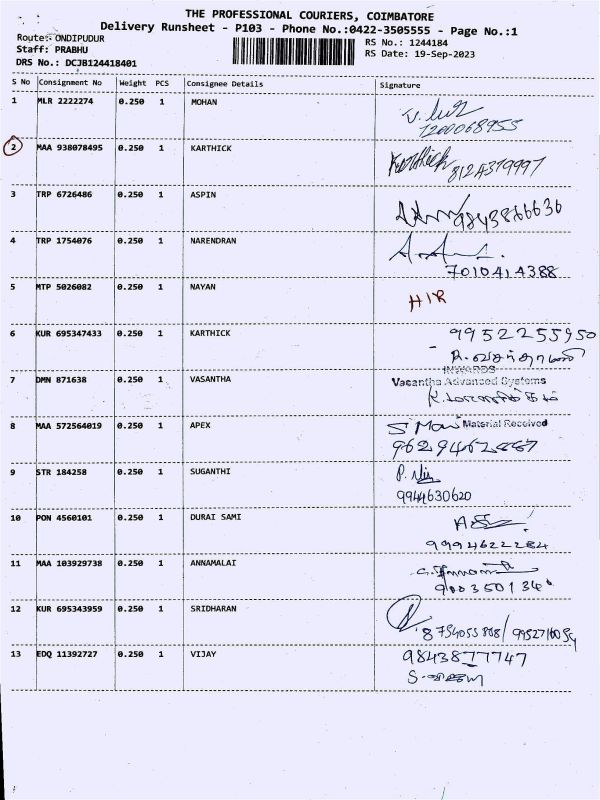 THE PROFESSIONAL COURIERS, COIMBATORE
Delivery Runsheet - P103 - Phone No.:0422-3505555 - Page No.:1
Route: ONDIPUDUR
RS No.: 1244184
Staff: PRABHU
RS Date: 19-Sep-2023
DRS No.: DCJB124418401
S No Consignment No Weight PCS Consignee Details Signature
1 MLR 2222274 0.250 1 MOHAN
7200068955
2 MAA 938078495 0.250 1 KARTHICK Karthick
8124379997
3 TRP 6726486 0.250 1 ASPIN
9843866636
4 TRP 1754076 0.250 1 NARENDRAN
7010414388
5 MTP 5026082 0.250 1 NAYAN HIR
6 KUR 695347433 0.250 1 KARTHICK 9952255950
INWARDS
7 DMN 871638 0.250 1 VASANTHA Vasantha Advanced Systems
8 MAA 572564019 0.250 1 APEX Material Received
9 STR 184258 0.250 1 SUGANTHI
9944630620
10 PON 4560101 0.250 1 DURAI SAMI
9994622284
11 MAA 103929738 0.250 1 ANNAMALAI
12 KUR 695343959 0.250 1 SRIDHARAN
8754055808/
13 EDQ 11392727 0.250 1 VIJAY 9843877747